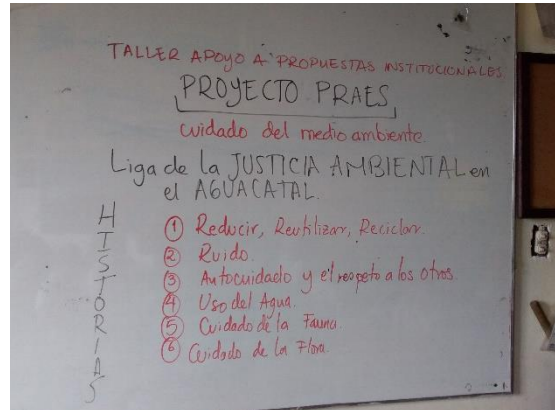 TALLER APOYO A PROPUESTAS INSTITUCIONALES
PROYECTO PRAES
cuidado del medio ambiente.
Liga de la JUSTICIA AMBIENTAL en
el AGUACATAL.
HISTORIAS
① Reducir, Reutilizar, Reciclar.
② Ruido.
③ Autocuidado y el respeto a los otros.
④ Uso del Agua.
⑤ Cuidado de la Fauna.
⑥ Cuidado de la Flora.